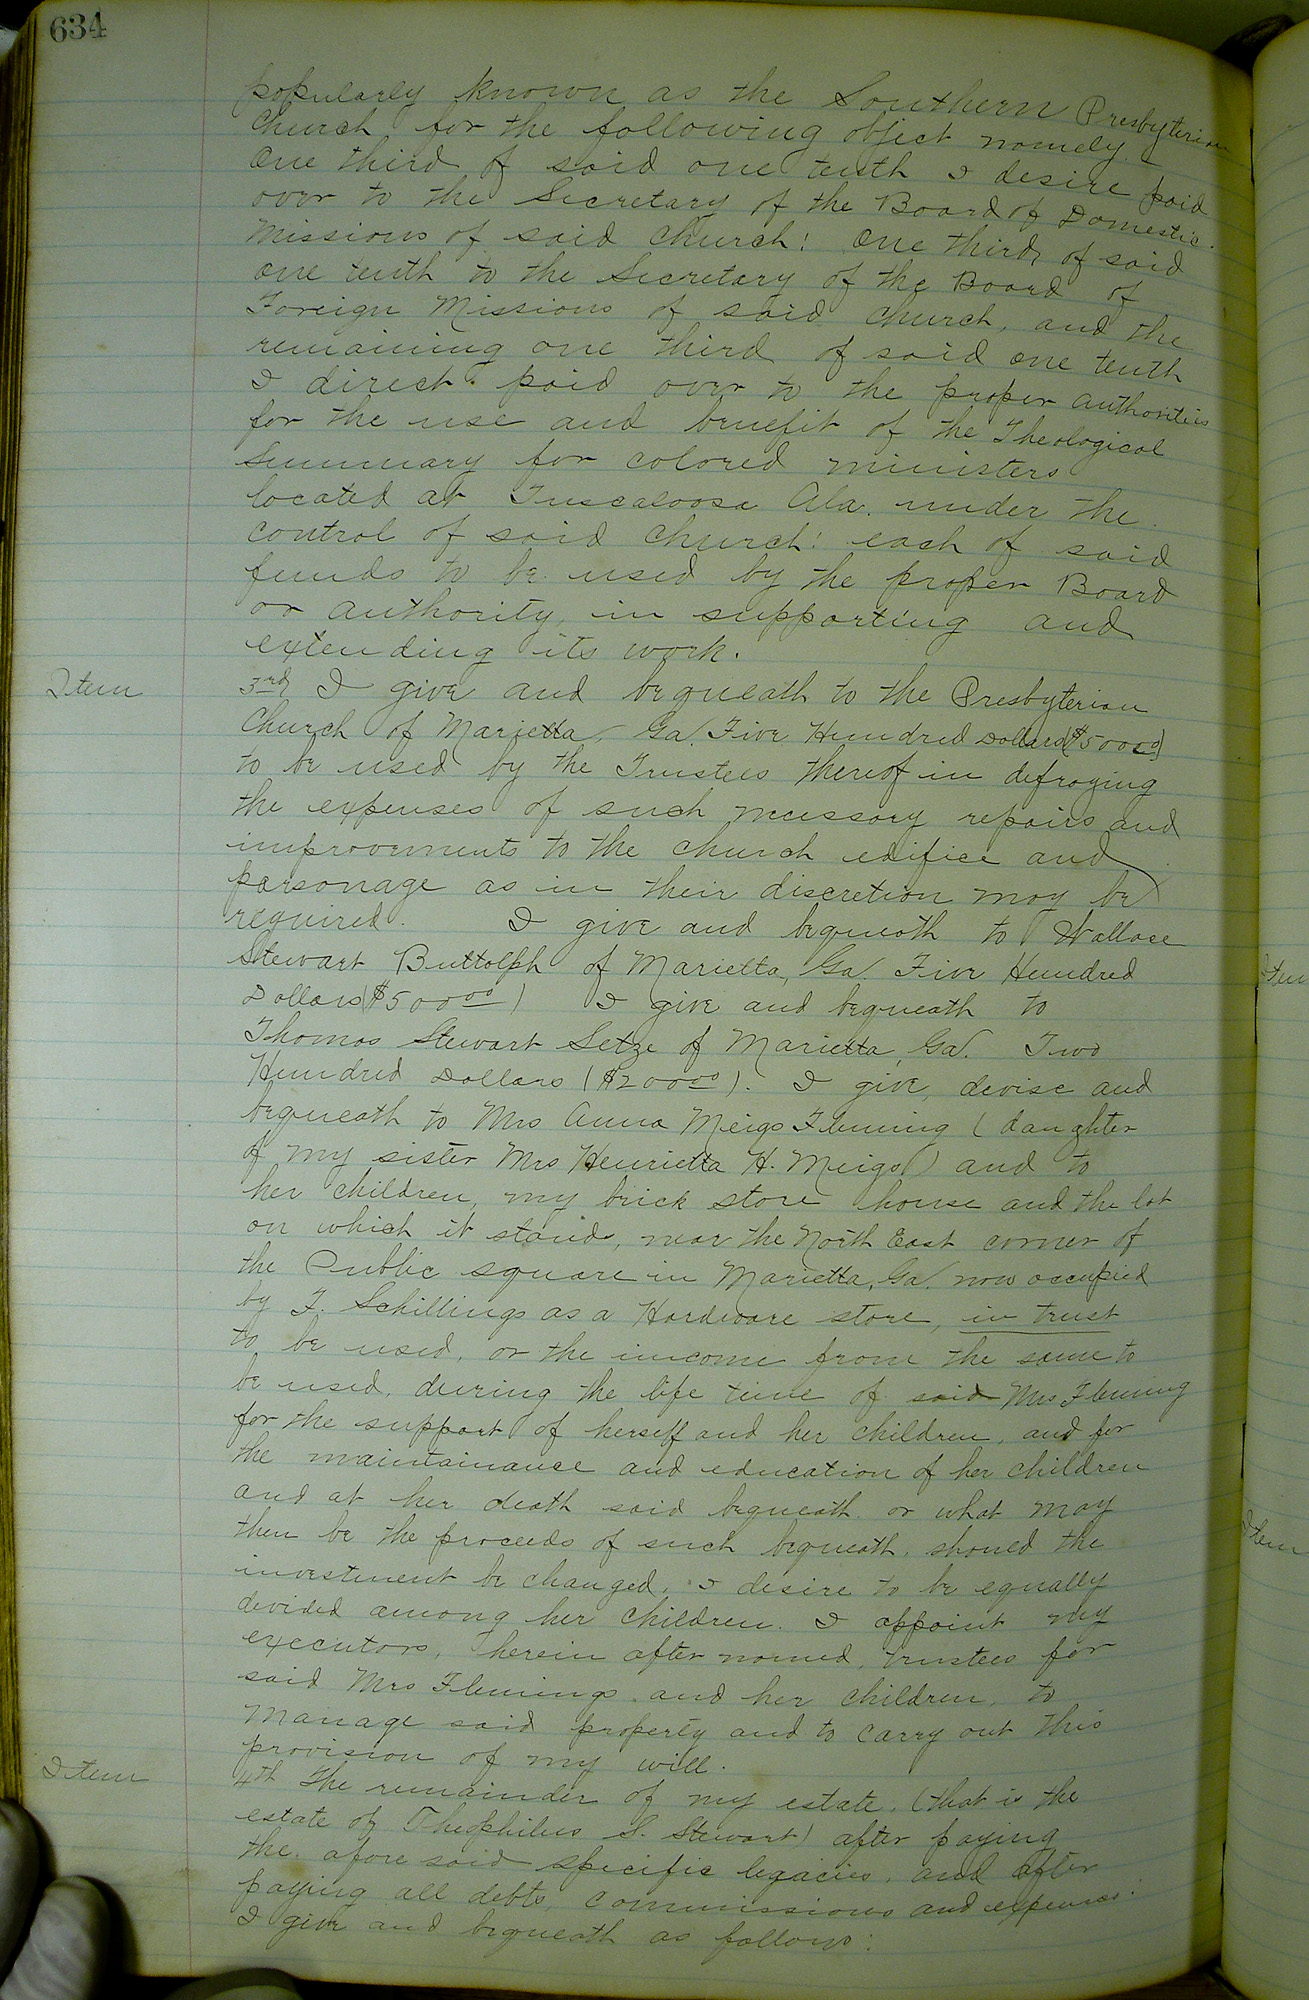 634
popularly known as the Southern Presbyterian
Church for the following object namely.
One third of said one tenth I desire paid
over to the Secretary of the Board of Domestic
Missions of said Church: One third of said
one tenth to the Secretary of the Board of
Foreign Missions of said Church, and the
remaining one third of said one tenth
I direct paid over to the proper authorities
for the use and benefit of the Theological
Summary for colored ministers
located at Tuscaloosa Ala. under the
control of said Church: each of said
funds to be used by the proper Board
or authority, in supporting and
extending its work.
Item 3rd I give and bequeath to the Presbyterian
Church of Marietta, Ga. Five Hundred Dollars ($500.00)
to be used by the Trustees thereof in defraying
the expenses of such necessary repairs and
improvements to the church edifice and
parsonage as in their discretion may be
required. I give and bequeath to Wallace
Stewart Buttolph of Marietta, Ga. Five Hundred
Dollars ($500 00) I give and bequeath to
Thomas Stewart Setze of Marietta, Ga. Two
Hundred Dollars ($200 00). I give, devise and
bequeath to Mrs Anna Meigs Fleming (daughter
of my sister Mrs Henrietta H. Meigs) and to
her children, my brick store house and the lot
on which it stands, near the North East corner of
the Public square in Marietta, Ga. now occupied
by F. Schillings as a Hardware store, in trust
to be used, or the income from the same to
be used, during the life time of said Mrs Fleming
for the support of herself and her children, and for
the maintainance and education of her children
and at her death said bequeath or what may
then be the proceeds of such bequeath, should the
investment be changed, I desire to be equally
devided among her children. I appoint my
executors, herein after named, trustees for
said Mrs Fleming and her children, to
manage said property and to carry out this
provision of my will.
Item 4th The remainder of my estate, (that is the
estate of Theophilus S. Stewart) after paying
the afore said specific legacies, and after
paying all debts, commissions and expenses.
I give and bequeath as follows:
Item
Item